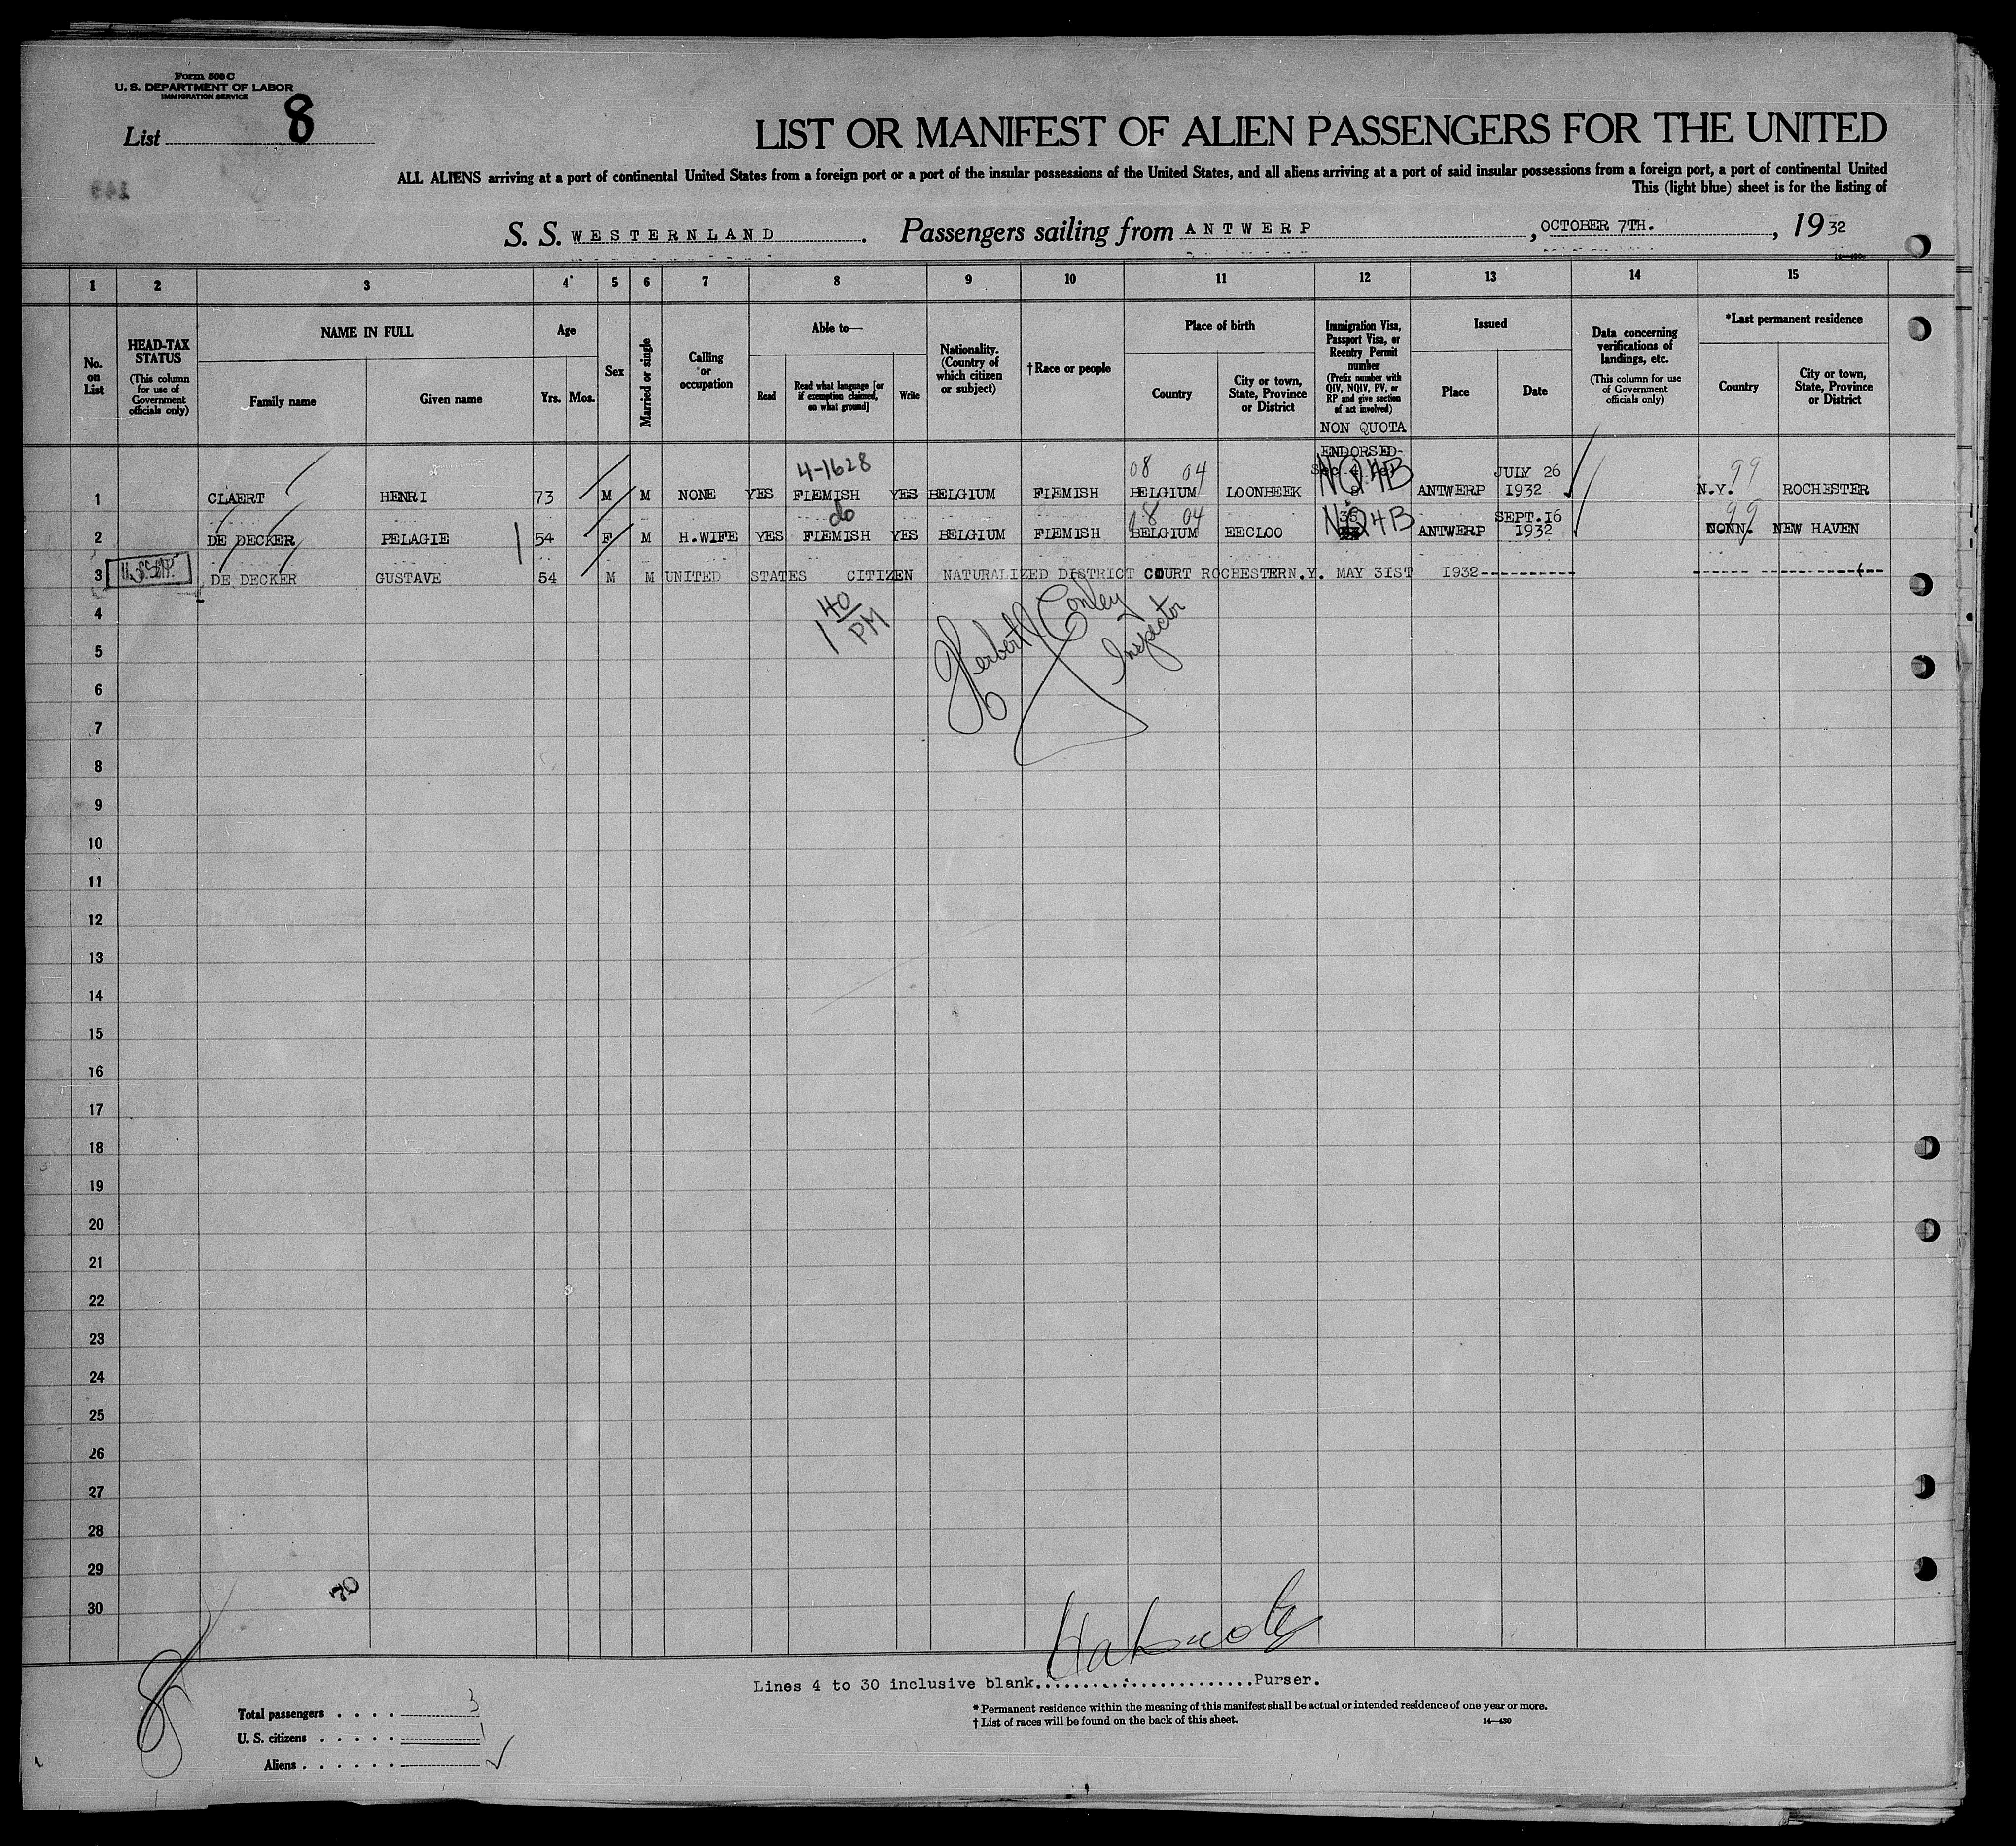 Form 500 C
U. S. DEPARTMENT OF LABOR
IMMIGRATION SERVICE
List 8
LIST OR MANIFEST OF ALIEN PASSENGERS FOR THE UNITED
ALL ALIENS arriving at a port of continental United States from a foreign port or a port of the insular possessions of the United States, and all aliens arriving at a port of said insular possessions from a foreign port, a port of continental United
This (light blue) sheet is for the listing of
S. S. WESTERNLAND. Passengers sailing from ANTWERP, OCTOBER 7TH., 1932
14-430
1 2 3 4 5 6 7 8 9 10 11 12 13 14 15
No. on List
HEAD-TAX STATUS
(This column for use of Government officials only)
NAME IN FULL
Family name
Given name
Age
Yrs. Mos.
Sex
Married or single
Calling or occupation
Able to—
Read
Read what language [or if exemption claimed, on what ground]
Write
Nationality. (Country of which citizen or subject)
†Race or people
Place of birth
Country
City or town, State, Province or District
Immigration Visa, Passport Visa, or Reentry Permit number
(Prefix number with QIV, NQIV, PV, or RP and give section of act involved)
NON QUOTA
Issued
Place
Date
Data concerning verifications of landings, etc.
(This column for use of Government officials only)
*Last permanent residence
Country
City or town, State, Province or District
ENDORSED-
4-1628 08 04 NQ4B JULY 26 99
1 CLAERT HENRI 73 M M NONE YES FLEMISH YES BELGIUM FLEMISH BELGIUM LOONBEEK ANTWERP 1932 N.Y. ROCHESTER
do 8 04 35 NQ4B SEPT.16 99
2 DE DECKER PELAGIE 54 F M H.WIFE YES FLEMISH YES BELGIUM FLEMISH BELGIUM EECLOO ANTWERP 1932 CONN. NEW HAVEN
3 DE DECKER GUSTAVE 54 M M UNITED STATES CITIZEN NATURALIZED DISTRICT COURT ROCHESTER N.Y. MAY 31ST 1932
4
1 40/PM
Herbert Conley
Inspector
5
6
7
8
9
10
11
12
13
14
15
16
17
18
19
20
21
22
23
24
25
26
27
28
29
70
30
8
Lines 4 to 30 inclusive blank Purser.
* Permanent residence within the meaning of this manifest shall be actual or intended residence of one year or more.
† List of races will be found on the back of this sheet.
14-430
Total passengers 3
U. S. citizens 1
Aliens